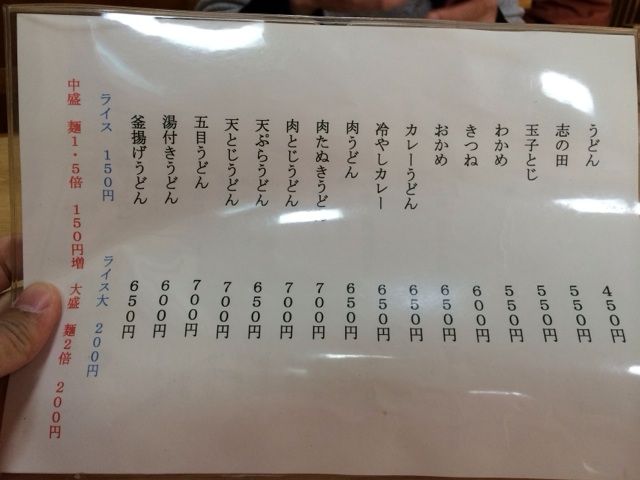 うどん ４５０円
志の田 ５５０円
玉子とじ ５５０円
わかめ ５５０円
きつね ６００円
おかめ ６５０円
カレーうどん ６５０円
冷やしカレー ６５０円
肉うどん ６５０円
肉たぬきうどん ７００円
肉とじうどん ７００円
天ぷらうどん ６５０円
天とじうどん ７００円
五目うどん ７００円
湯付きうどん ６００円
釜揚げうどん ６５０円
ライス １５０円 ライス大 ２００円
中盛 麺１・５倍 １５０円増 大盛 麺２倍 ２００円